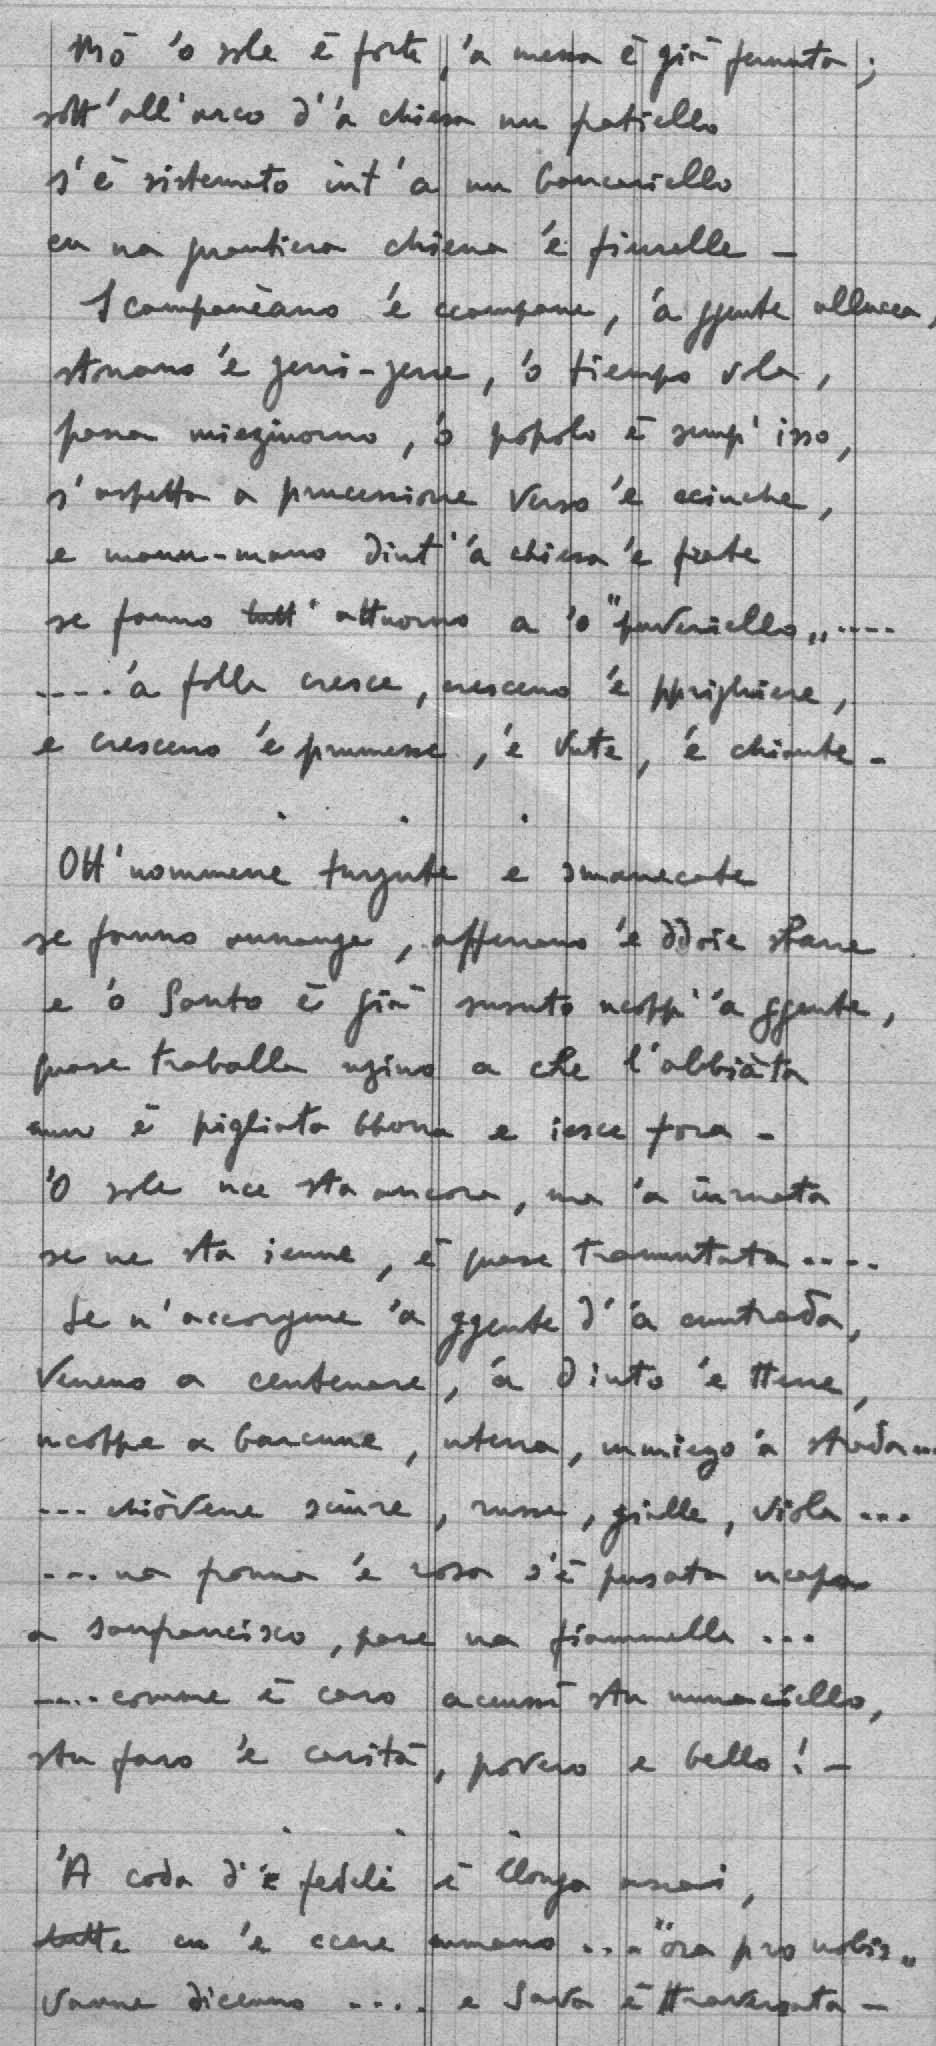 Mō 'o sole ē forte, 'a messa ē già fernuta;
sott'all'arco d' 'a chiesa nu patiello
s'ē sistemato int'a nu bancariello
cu na guantiera chiena 'e fiurelle –
Scampanèano 'e ccampane, 'a ggente allucca,
stonano 'e zerri-zerre, 'o tiempo vola,
passa miezjuorno, 'o popolo ē semp' isso,
s'aspetta a prucessione verso 'e ccinche,
e manu-mano dint' 'a chiesa 'e frate
se fanno tutt' attuorno a 'o "puveriello„ ....
.... 'a folla cresce, cresceno 'e pprighiere,
e cresceno 'e prumesse, 'e vute, 'e chiante –
. . .
Ott'uommene turzute e smanecate
se fanno nnanze, afferrano 'e ddoie stanne
e 'o Santo ē già susuto ncopp' 'a ggente,
quase traballa nzino a che l'abbiàta
nun ē pigliata bbona e iesce fora –
'O sole nce sta ancora, ma 'a iurnata
se ne sta ienne, ē quase tramutata ....
Se n'accorgene 'a ggente d' 'a cuntrada,
Veneno a centenare, 'a dinto 'e tterre,
ncoppe a barcune, nterra, mmiezo 'a strada...
... chiòvene sciure, russe, gialle, viola ...
... na fronna 'e rosa s'ē pusata ncapo
a sanfrancisco, pare na fiammella ...
.... comme ē caro accussì stu munaciello,
stu faro 'e carità, povero e bello! –
. . .
'A coda d' 'e fedeli ē llonga assai,
tutte cu 'e ccere mmano ... "ora pro nobis„
vanne dicenno .... e Sava ē ttraversata –